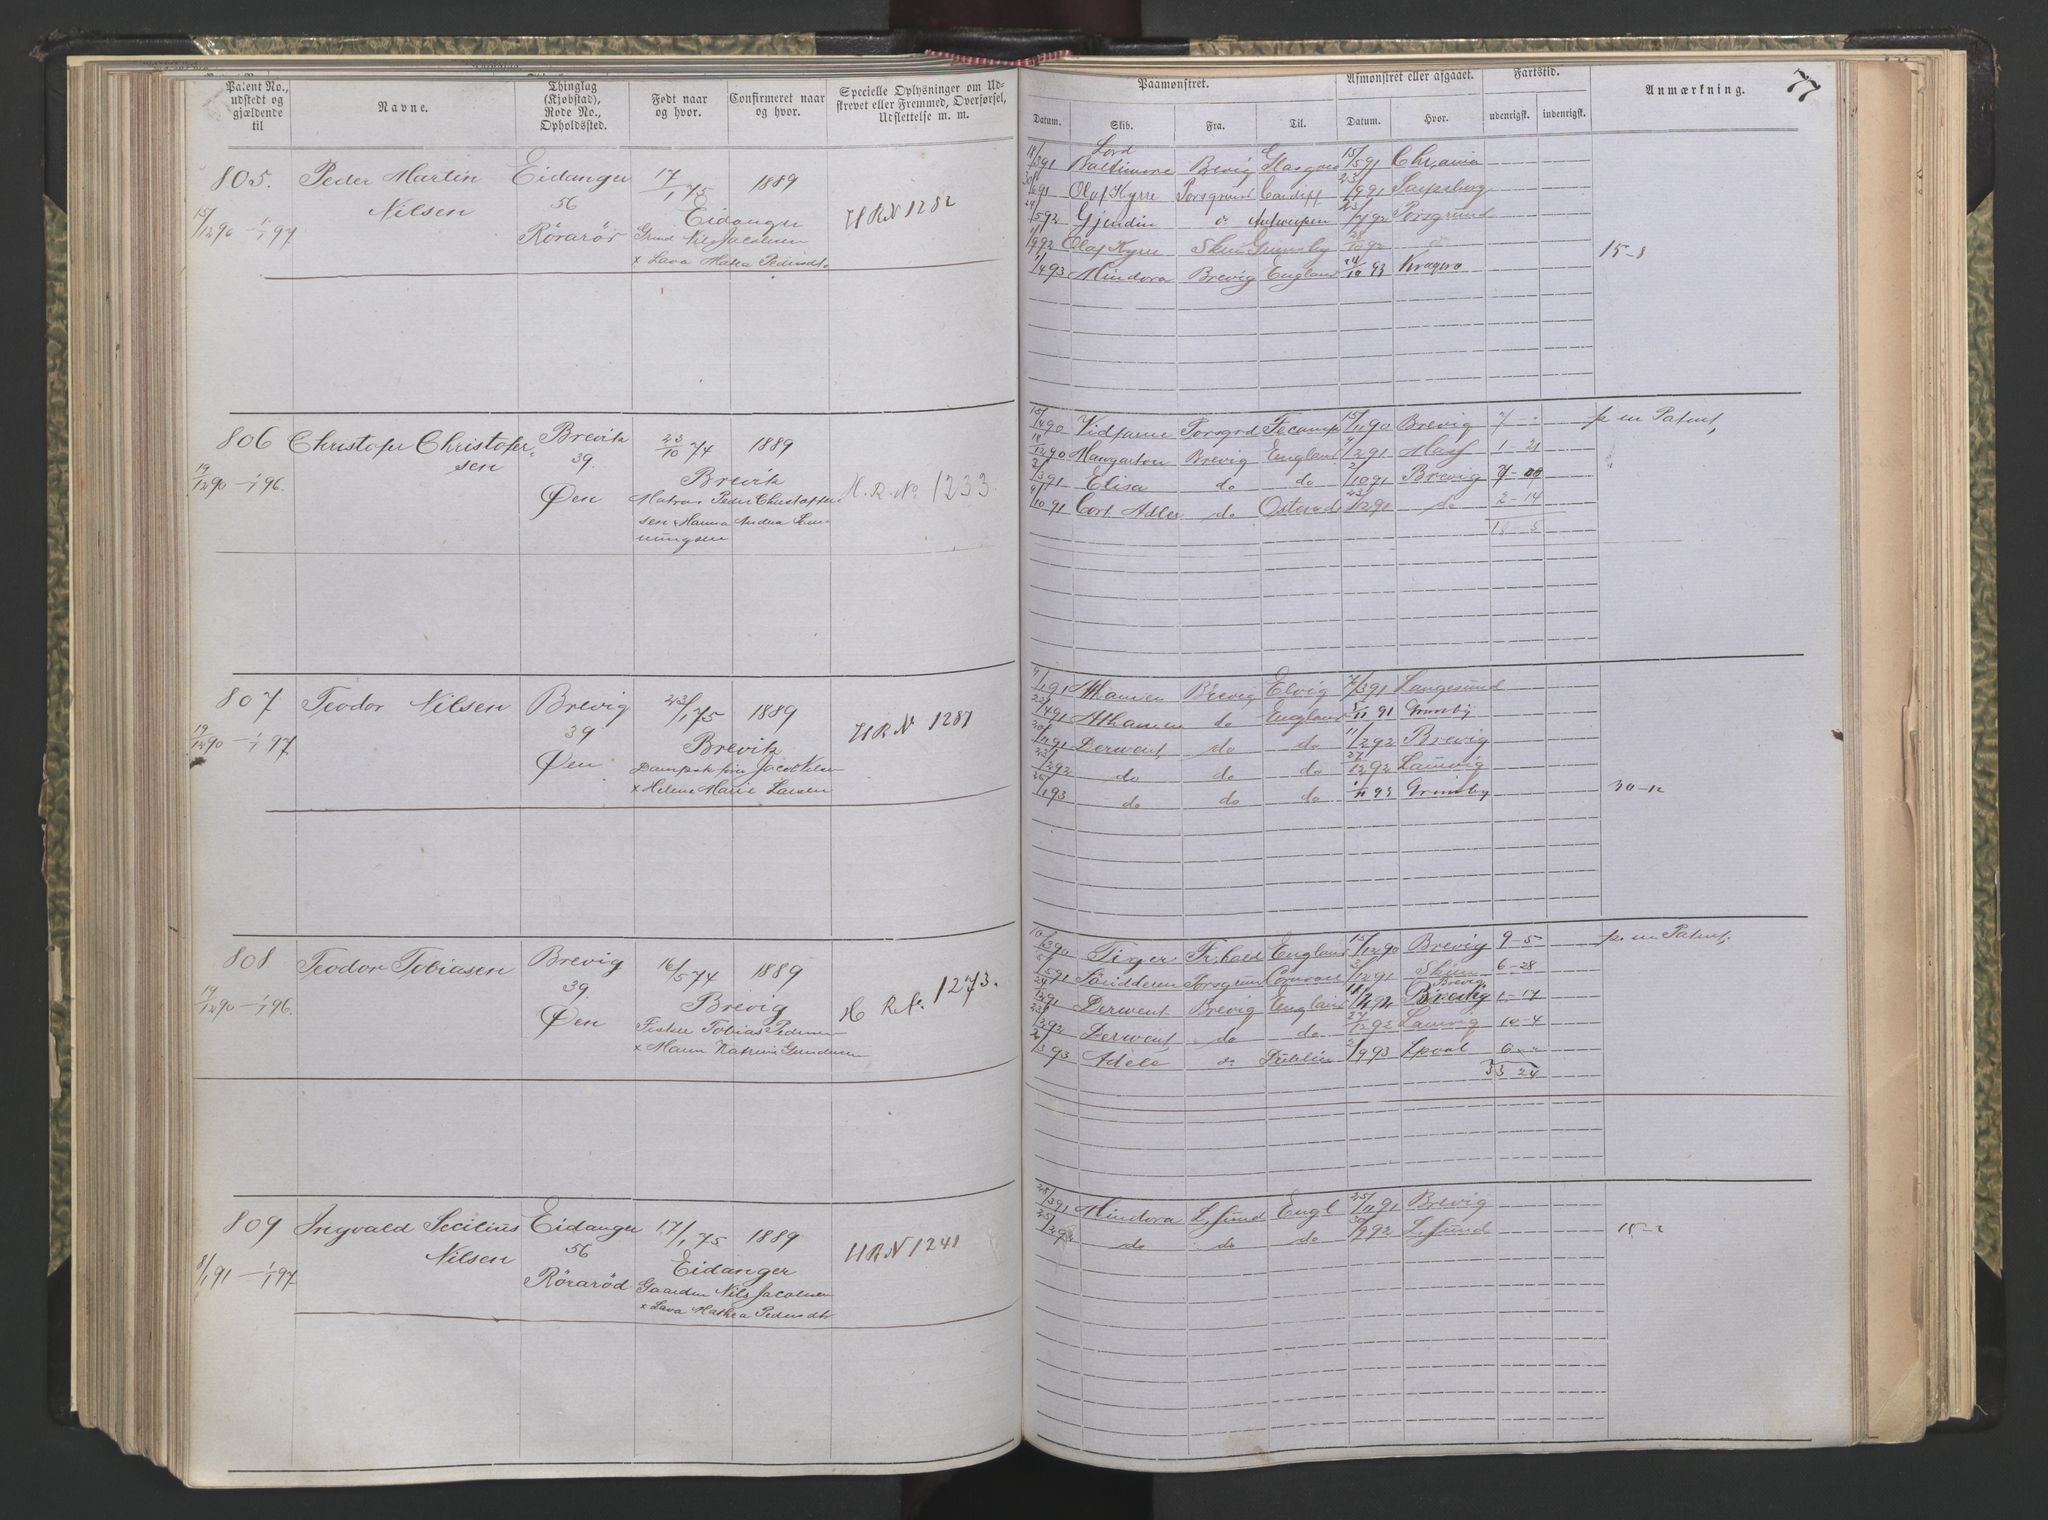 Patent No., udstedt og gjældende til
Navne.
Thinglag (Kjøbstad), Rode No., Opholdssted.
Født naar og hvor.
Confirmeret naar og hvor.
Specielle Oplysninger om Udskrevet eller Fremmed, Overførsel, Udslettelse m. m.
Paamønstret.
Afmønstret eller afgaaet.
Fartstid.
Anmærkning.
77
Datum. Skib. Fra. Til. Datum. Hvor. udenrigsk. indenrigsk.
805. Peder Martin Eidanger 17/1 75 1889
Nilsen 56 Eidanger H R N 1282
15/12 90 – 1/1 97 Rörarör
Nils Jacobsen
x Lava Mathea Pedersdtr
18/3 91 Lord Baltimore Brevig Glasgow 15/5 91 Chr.ania
Olaf Kyrre Porsgrund Cardiff 23/9 91 Sarpsborg
24/5 92 Gjendin do Antwerpen 23/7 92 Porsgrund
1/9 92 Olaf Kyrre Skien Grimsby 28/10 92 do
1/4 93 Mindora Brevig England 24/10 93 Kragerø
15-8
806 Christofer Christofersen Brevik 23/10 74 1889
39. Brevik H. R. No. 1233.
19/12 90 – 1/1 96. Øen
Matros Peder Christoffersen
x Hanna Andrea
15/4 90 Vidfarne Porsgrd Fecamp 15/11 90 Brevig 7 - - p. en Patent,
18/12 90 Mangarton Brevig England 9/2 91 1-21
2/3 91 Elisa do do 2/10 91 Brevig 7-00
9/10 91 Cort Adler do Ostende 23/12 91 do 2-14
18-5
807 Teodor Nilsen Brevig 23/1 75 1889
39 Brevik H R N 1287
19/12 90 – 1/1 97. Øen
Dampskfører Jacob Nilsen
x Helene Marie Larsen
9/1 91 Athamen Brevig 7/3 91 Langesund
23/4 91 Athamen do England 5/11 91 Grimsby
30/12 91 Derwent do do 11/2 92 Brevig
23/2 92 do do do 27/12 92 Laurvig
26/1 93 do do do 1/11 93 Grimsby
30-12
808. Teodor Tobiasen Brevig 16/5 74 1889
39. Brevig H R No. 1273.
19/12 90 – 1/1 96. Øen
Fisker Tobias Pedersen
x Maren Katrine Gundersen
10/3 90 Tiger Fr.hald England 15/12 90 Brevig 9-5 p. en Patent.
5/5 91 Porsgrund 3/12 91 Skien 6-28
24/12 91 Derwent Brevig England 18/2 92 Brevig 1-17
23/2 92 Derwent do do 27/12 92 Laurvig 10-4
3 93 Adele do Dublin 2/9 93 Lpool 6 - -
33 24
809 Ingvald Secilius Eidanger 17/1 75 1889
Nilsen 56 Eidanger H R N 1241
8/1 91 – 1/1 97 Röraröd
Gaardm Nils Jacobsen
x Lava Mathea Pedersdtr
28/3 91 Mindora L.sund Engl 25/10 91 Brevig
25/2 92 do do do 30/9 92 L.sund
15-2